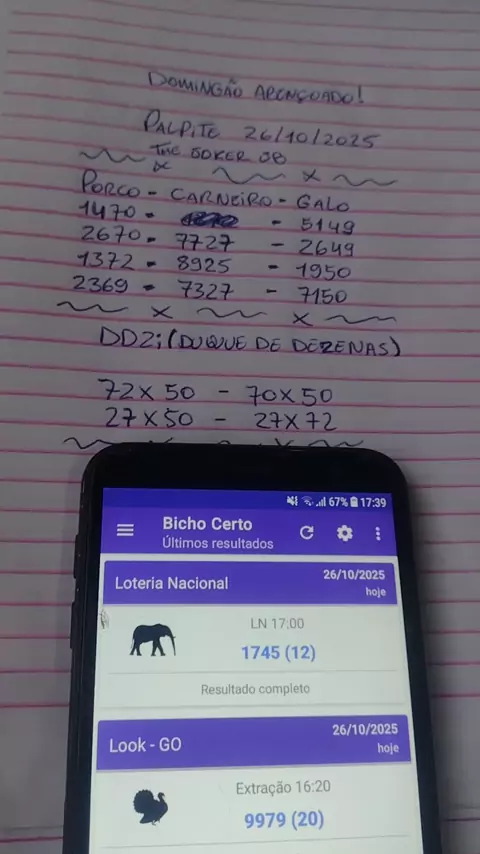 DOMINGÃO ABENÇOADO!
PALPITE 26/10/2025
THE JOKER JB
PORCO - CARNEIRO - GALO
1470 - - 5149
2670 - 7727 - 2649
1372 - 8925 - 1950
2369 - 7327 - 7150
DDZ; (DUQUE DE DEZENAS)
72X50 - 70X50
27X50 - 27X72
67% 17:39
Bicho Certo
Últimos resultados
Loteria Nacional 26/10/2025
hoje
LN 17:00
1745 (12)
Resultado completo
Look - GO 26/10/2025
hoje
Extração 16:20
9979 (20)